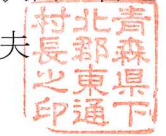 夫
青森県下
北郡東通
村長之印